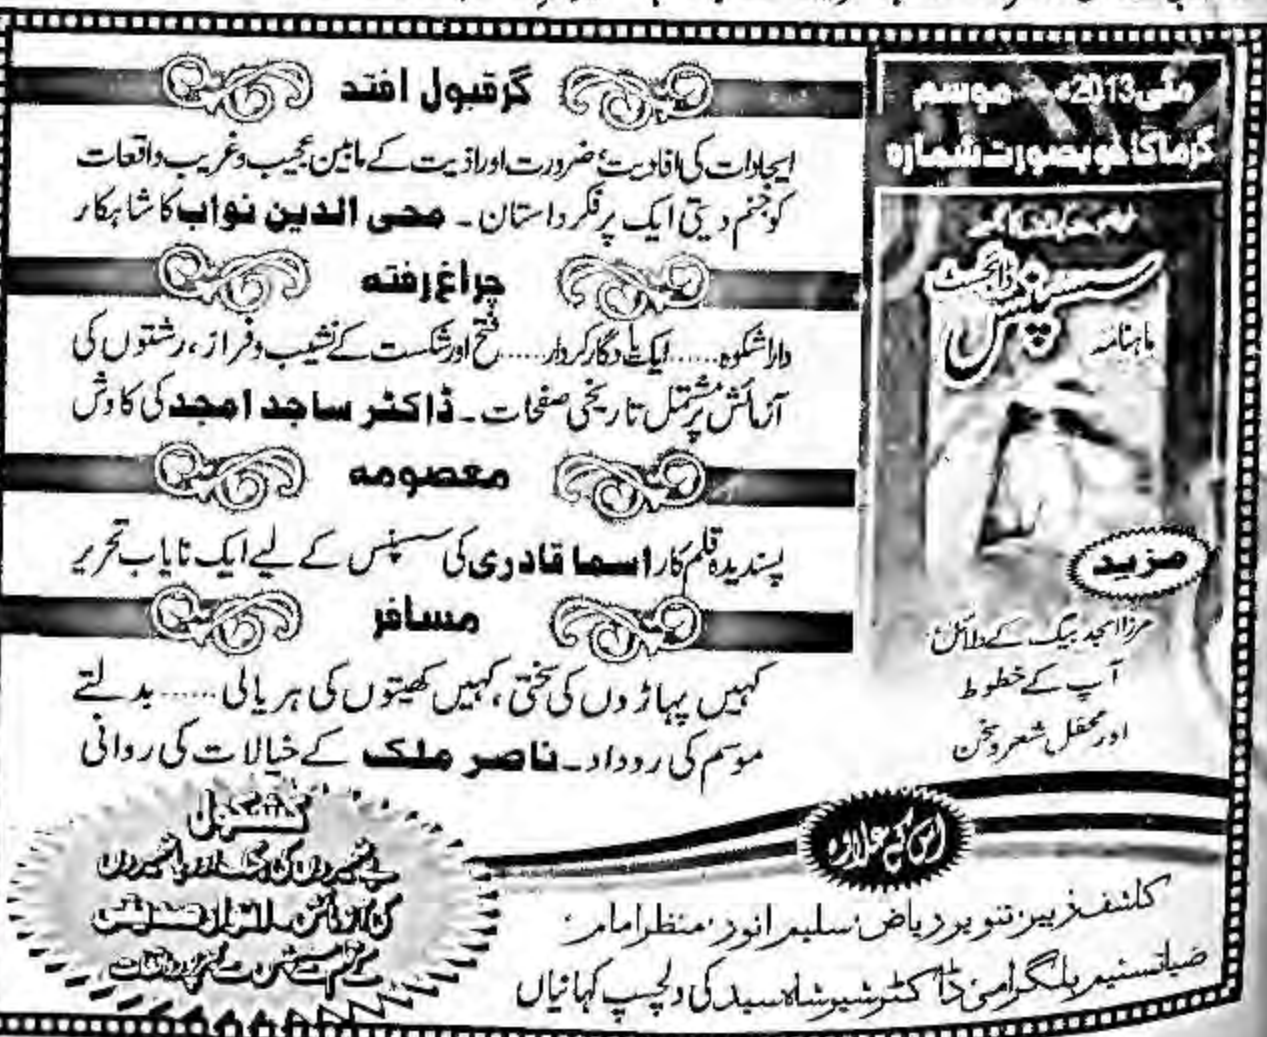 مئی2013ء موسم
گرما کا خوبصورت شمارہ
سسپنس ڈائجسٹ
ماہنامہ
مزید
مرزا امجد بیگ کے دلائل،
آپ کے خطوط
اور محفل شعر و سخن
گر قبول افتد
ایجادات کی افادیت، ضرورت اور اذیت کے مابین عجیب و غریب واقعات
کو جنم دیتی ایک پر فکر داستان۔ محی الدین نواب کا شاہکار
چراغ رفتہ
دارا شکوہ......ایک یادگار کردار......فتح اور شکست کے نشیب و فراز، رشتوں کی
آزمائش پر مشتمل تاریخی صفحات۔ ڈاکٹر ساجد امجد کی کاوش
معصومہ
پسندیدہ قلم کار اسما قادری کی سسپنس کے لیے ایک نایاب تحریر
مسافر
کہیں پہاڑوں کی سختی، کہیں کھیتوں کی ہریالی...... بدلتے
موسم کی روداد۔ ناصر ملک کے خیالات کی روانی
کشکول
بے ضمیروں کی جنگ اور باضمیروں
کی آزمائش۔ انوار صدیقی
کے قلم سے
اس کے علاوہ
کاشف زبیر، تنویر ریاض، سلیم انور، منظر امام،
ضیا تسنیم بلگرامی، ڈاکٹر شیر شاہ سید کی دلچسپ کہانیاں